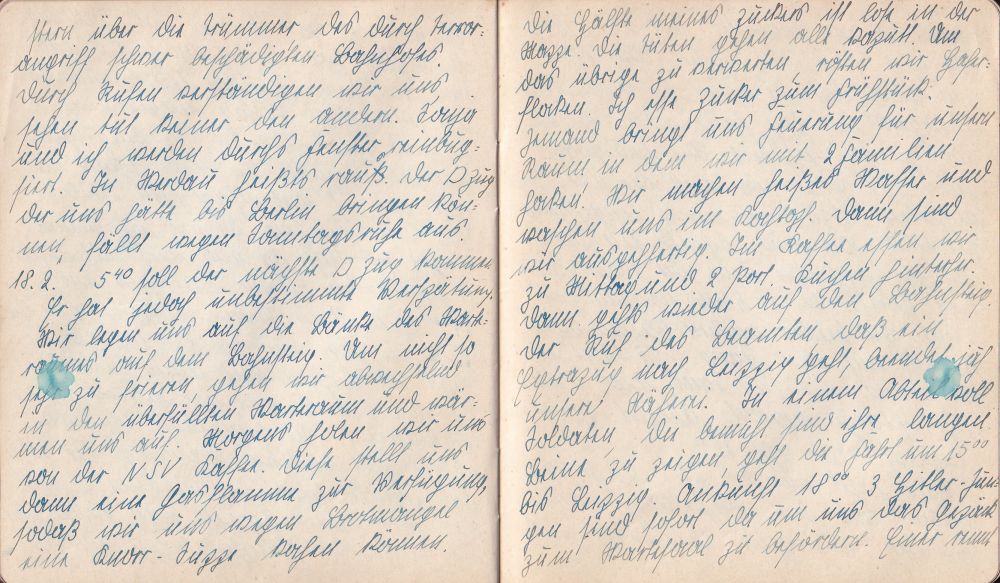 stern über die Trümmer des durch Terror-
angriff schwer beschädigten Bahnhofes.
Durch Rufen verständigen wir uns
sehen tut keiner den andern.
und ich werden durchs Fenster reinbug-
siert. In Werdau heißts rauß. Der D zug
der uns hätte bis Berlin bringen kön-
nen, fällt wegen Sonntagsruhe aus.
18. 2. 5 40 soll der nächste D zug kommen
Er hat jedoch unbestimmte Verspätung.
Wir legen uns auf die Bänke des Warte-
raumes auf dem Bahnsteig. Um nicht so
sehr zu frieren gehen wir abwechselnd
in den überfüllten Warteraum und wär-
men uns auf. Morgens holen wir uns
von der NSV Kaffee. Diese stellt uns
dann eine Gasflamme zur Verfügung,
sodaß wir uns wegen Brotmangel
eine Knorr-Suppe kochen können.
Die Hälfte meines Zuckers ist lose in der
Mappe. Die Tüten gehen alle kaputt. Um
das übrige zu verwerten rösten wir Hafer-
flocken. Ich esse Zucker zum Frühstück.
Jemand bringt uns Feuerung für unsern
Raum in dem wir mit 2 Familien
hocken. Wir machen heißes Wasser und
waschen uns im Kochtopf. Dann sind
wir ausgehfertig. Im Kaffee essen wir
zu Mittag und 2 Port. Kuchen hinterher.
Dann gehts wieder auf den Bahnsteig
Der Ruf des Beamten, daß ein
Extrazug nach Leipzig geht, beendet jäh
unsere. In einem Abteil voll
Soldaten, die bemüht sind ihre langen
Beine zu zeigen, geht die Fahrt um 15 00
bis Leipzig. Ankunft 18 00 3 Hitler-Jun-
gen sind sofort da um uns das Gepäck
zum Wartesaal zu befördern. Einer rennt